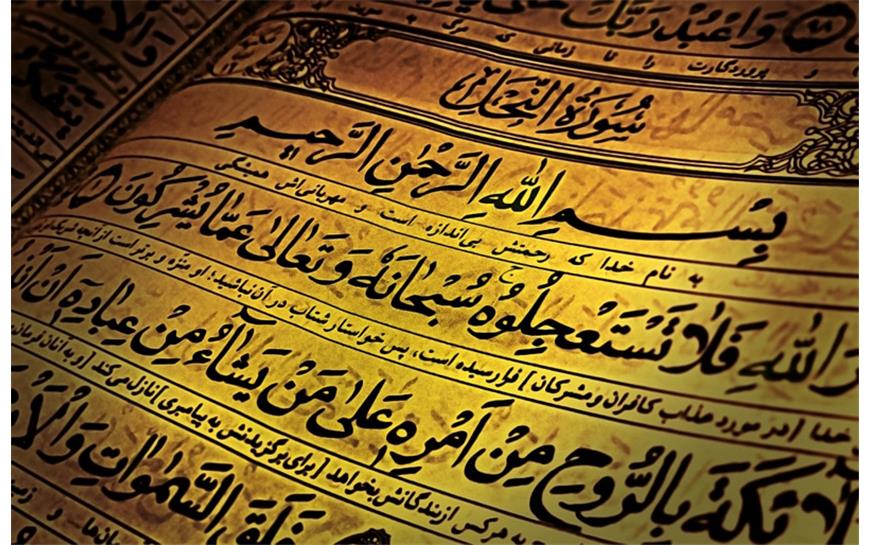 وَاعْبُدْ رَبَّكَ حَتّٰى
و پروردگارت را تا زمانی که مرگ
سُورَةُ النَّحْلِ
بِسْمِ اللّٰهِ الرَّحْمٰنِ الرَّحِيمِ
به نام خدا که رحمتش بی‌اندازه است و مهربانی‌اش همیشگی
اللّٰهِ فَلَا تَسْتَعْجِلُوهُ سُبْحَانَهُ وَ تَعَالىٰ عَمَّا يُشْرِكُونَ ١
خدا [در مورد عذاب کافران و مشرکان] فرا رسیده است، پس خواستار شتاب در آن نباشید؛ او منزّه و برتر است از آنچه شریک او
ئِكَةَ بِالرُّوحِ مِنْ اَمْرِهِ عَلىٰ مَنْ يَشَاءُ مِنْ عِبَادِهِ اَنْ
به هر کس از بندگانش بخواهد [برای برگزیدنش به پیامبری] نازل می‌کند [و به آنان
خَلَقَ السَّمٰوَاتِ وَالْاَ